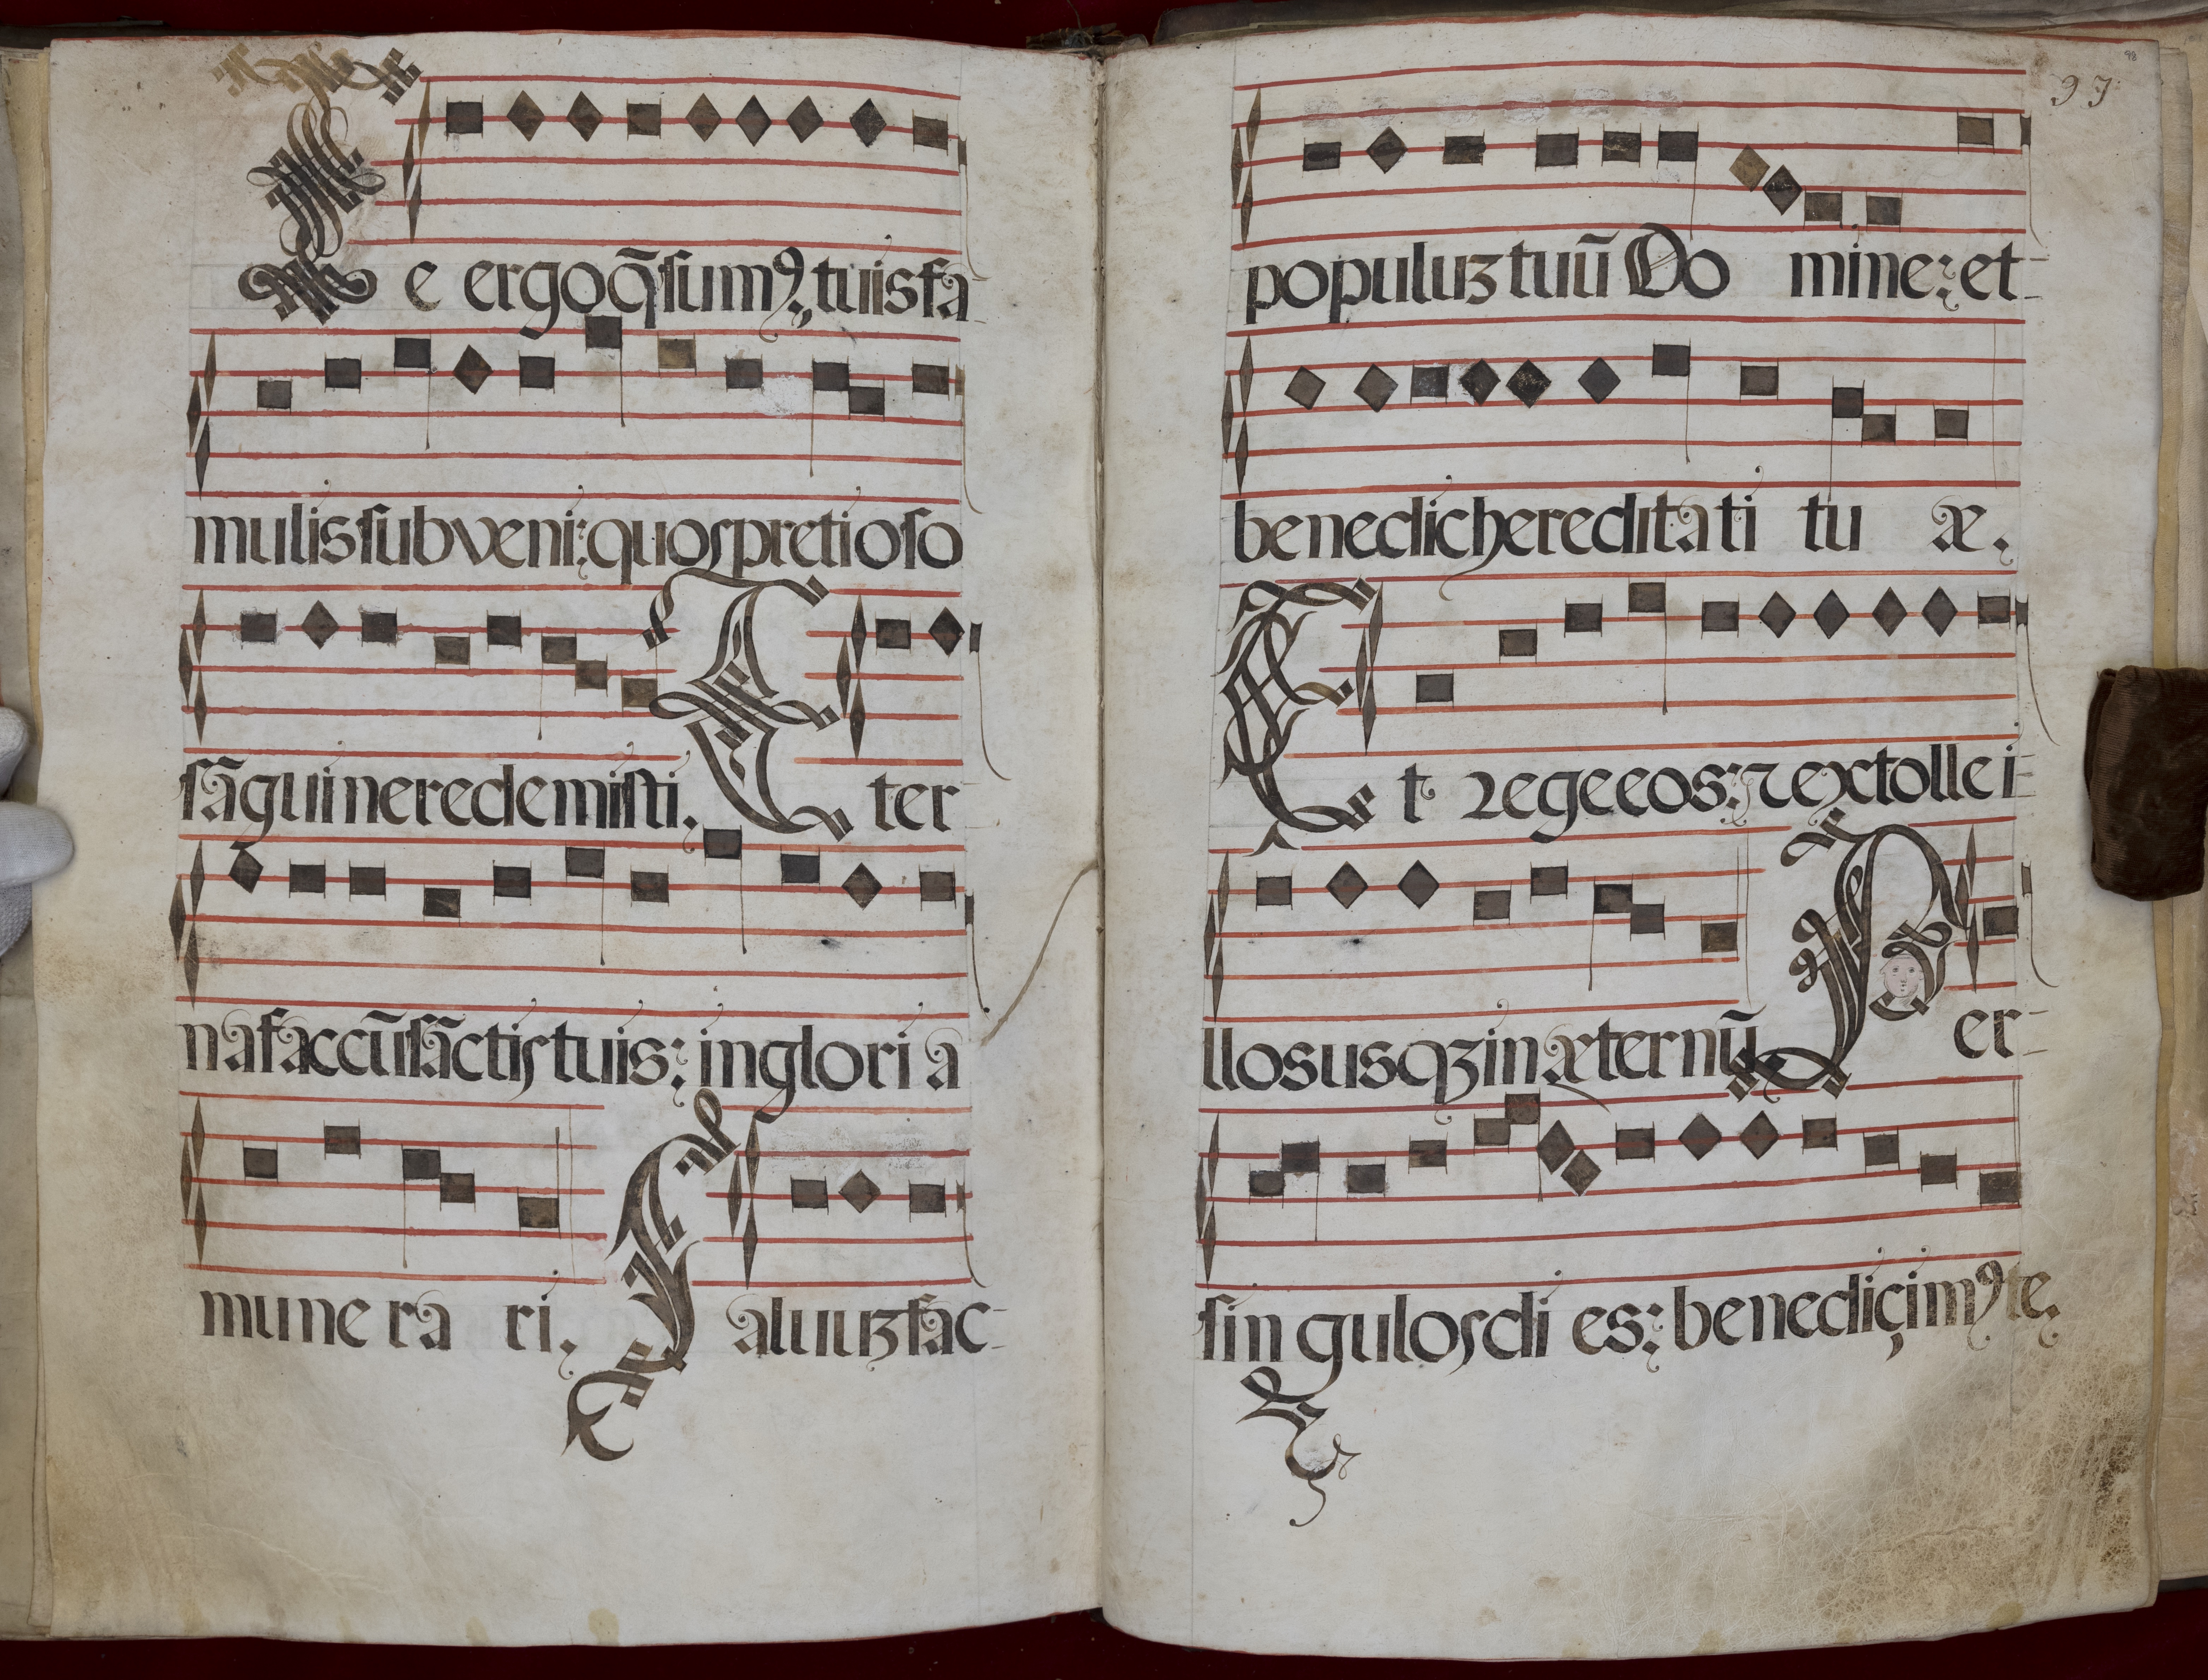 Te ergo q̃sumꝰ, tuis fa-
mulis subveni: quos pretioso
sãguine redemisti. Æter-
na fac cũ sãctis tuis: in gloria
mune ra ri. Salvuꝫ fac-
97
98
populuꝫ tuũ Do mine: et-
benedic hereditati tu æ.
Et rege eos: ⁊ extolle i-
llos usqꝫ in æternũ. Per-
singulos di es: benediçimꝰ te.